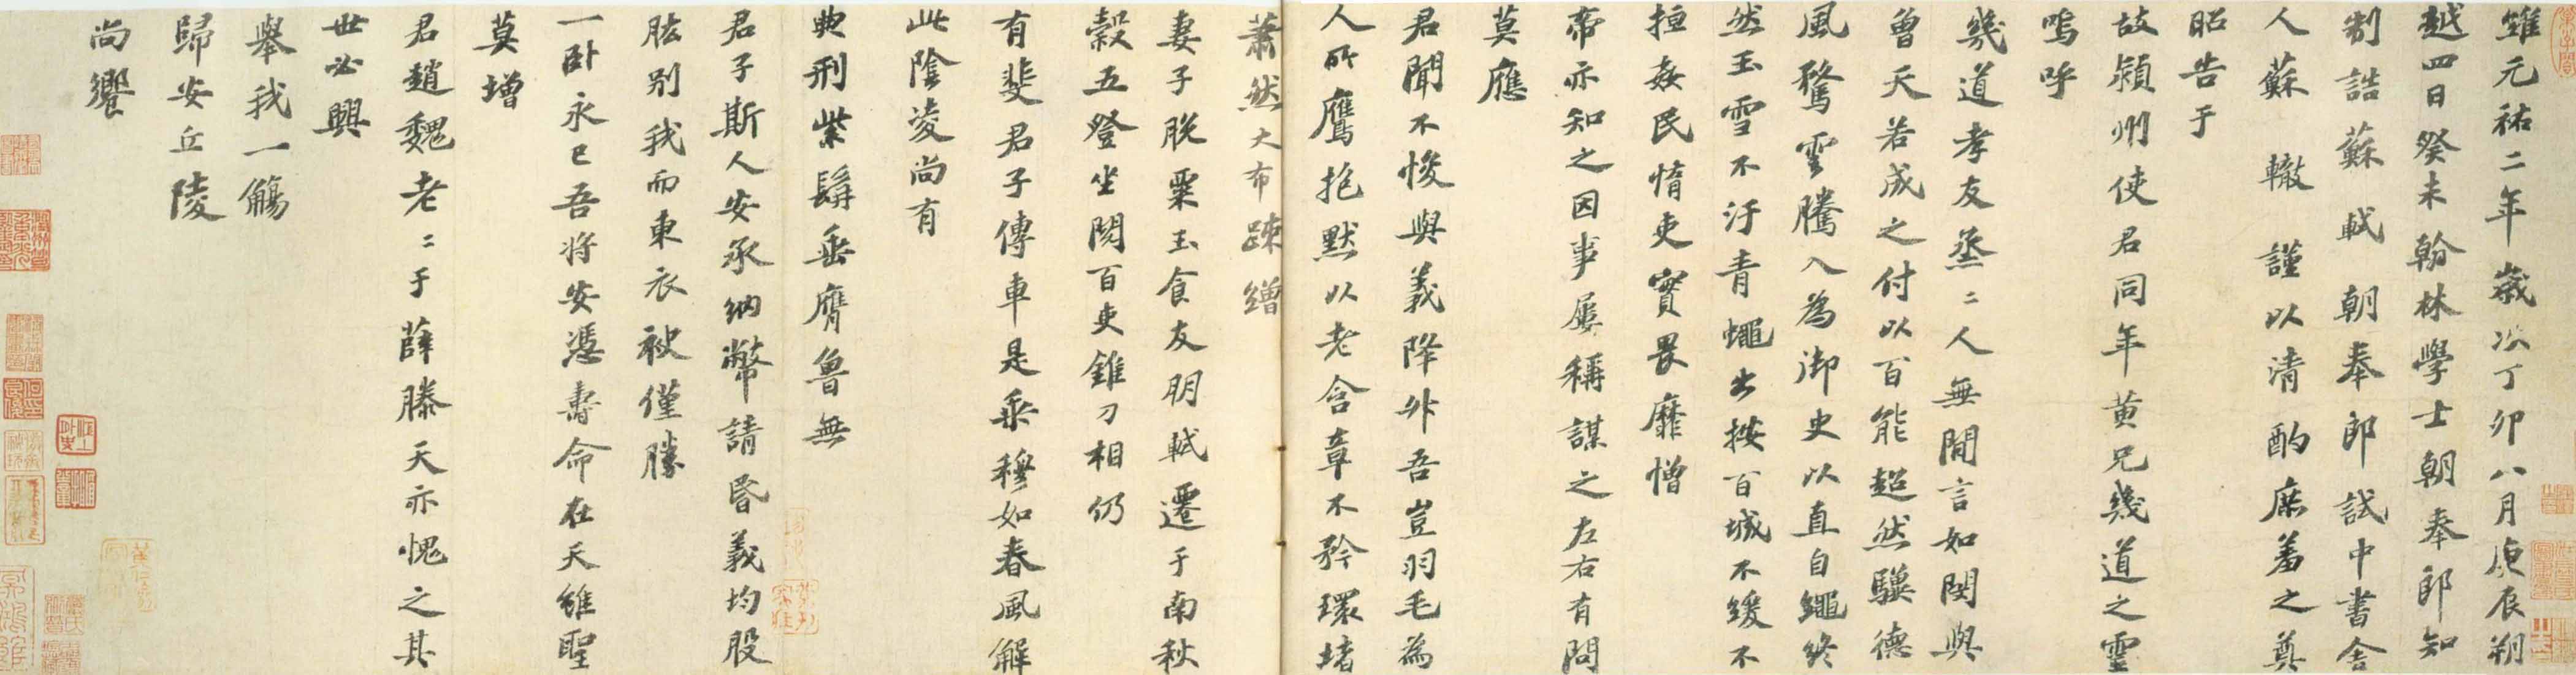 維元祐二年歲次丁卯八月庚辰朔
越四日癸未翰林學士朝奉郎知
制誥蘇軾朝奉郎試中書舍
人蘇轍謹以清酌庶羞之奠
昭告于
故潁州使君同年黃兄幾道之靈
嗚呼
幾道孝友烝〻人無間言如閔與
曾天若成之付以百能超然驥德
風騖雲騰入為御史以直自繩終
然玉雪不汙青蠅出按百城不緩不
搄姦民惰吏實畏靡憎
帝亦知之因事屢稱謀之左右有問
莫應
君聞不悛與義降升吾豈羽毛為
人所鷹抱默以老含章不矜環堵
蕭然大布疎繒
妻子脫粟玉食友朋軾遷于南秋
穀五登坐閱百吏錐刀相仍
有斐君子傳車是乘穆如春風解
此陰凌尚有
典刑紫髯垂膺魯無
君子斯人安承納幣請昏義均股
肱別我而東衣袂僅勝
一臥永已吾將安憑壽命在天雖聖
莫增
君趙魏老〻于薛滕天亦愧之其
世必興
舉我一觴
歸安丘陵
尚饗